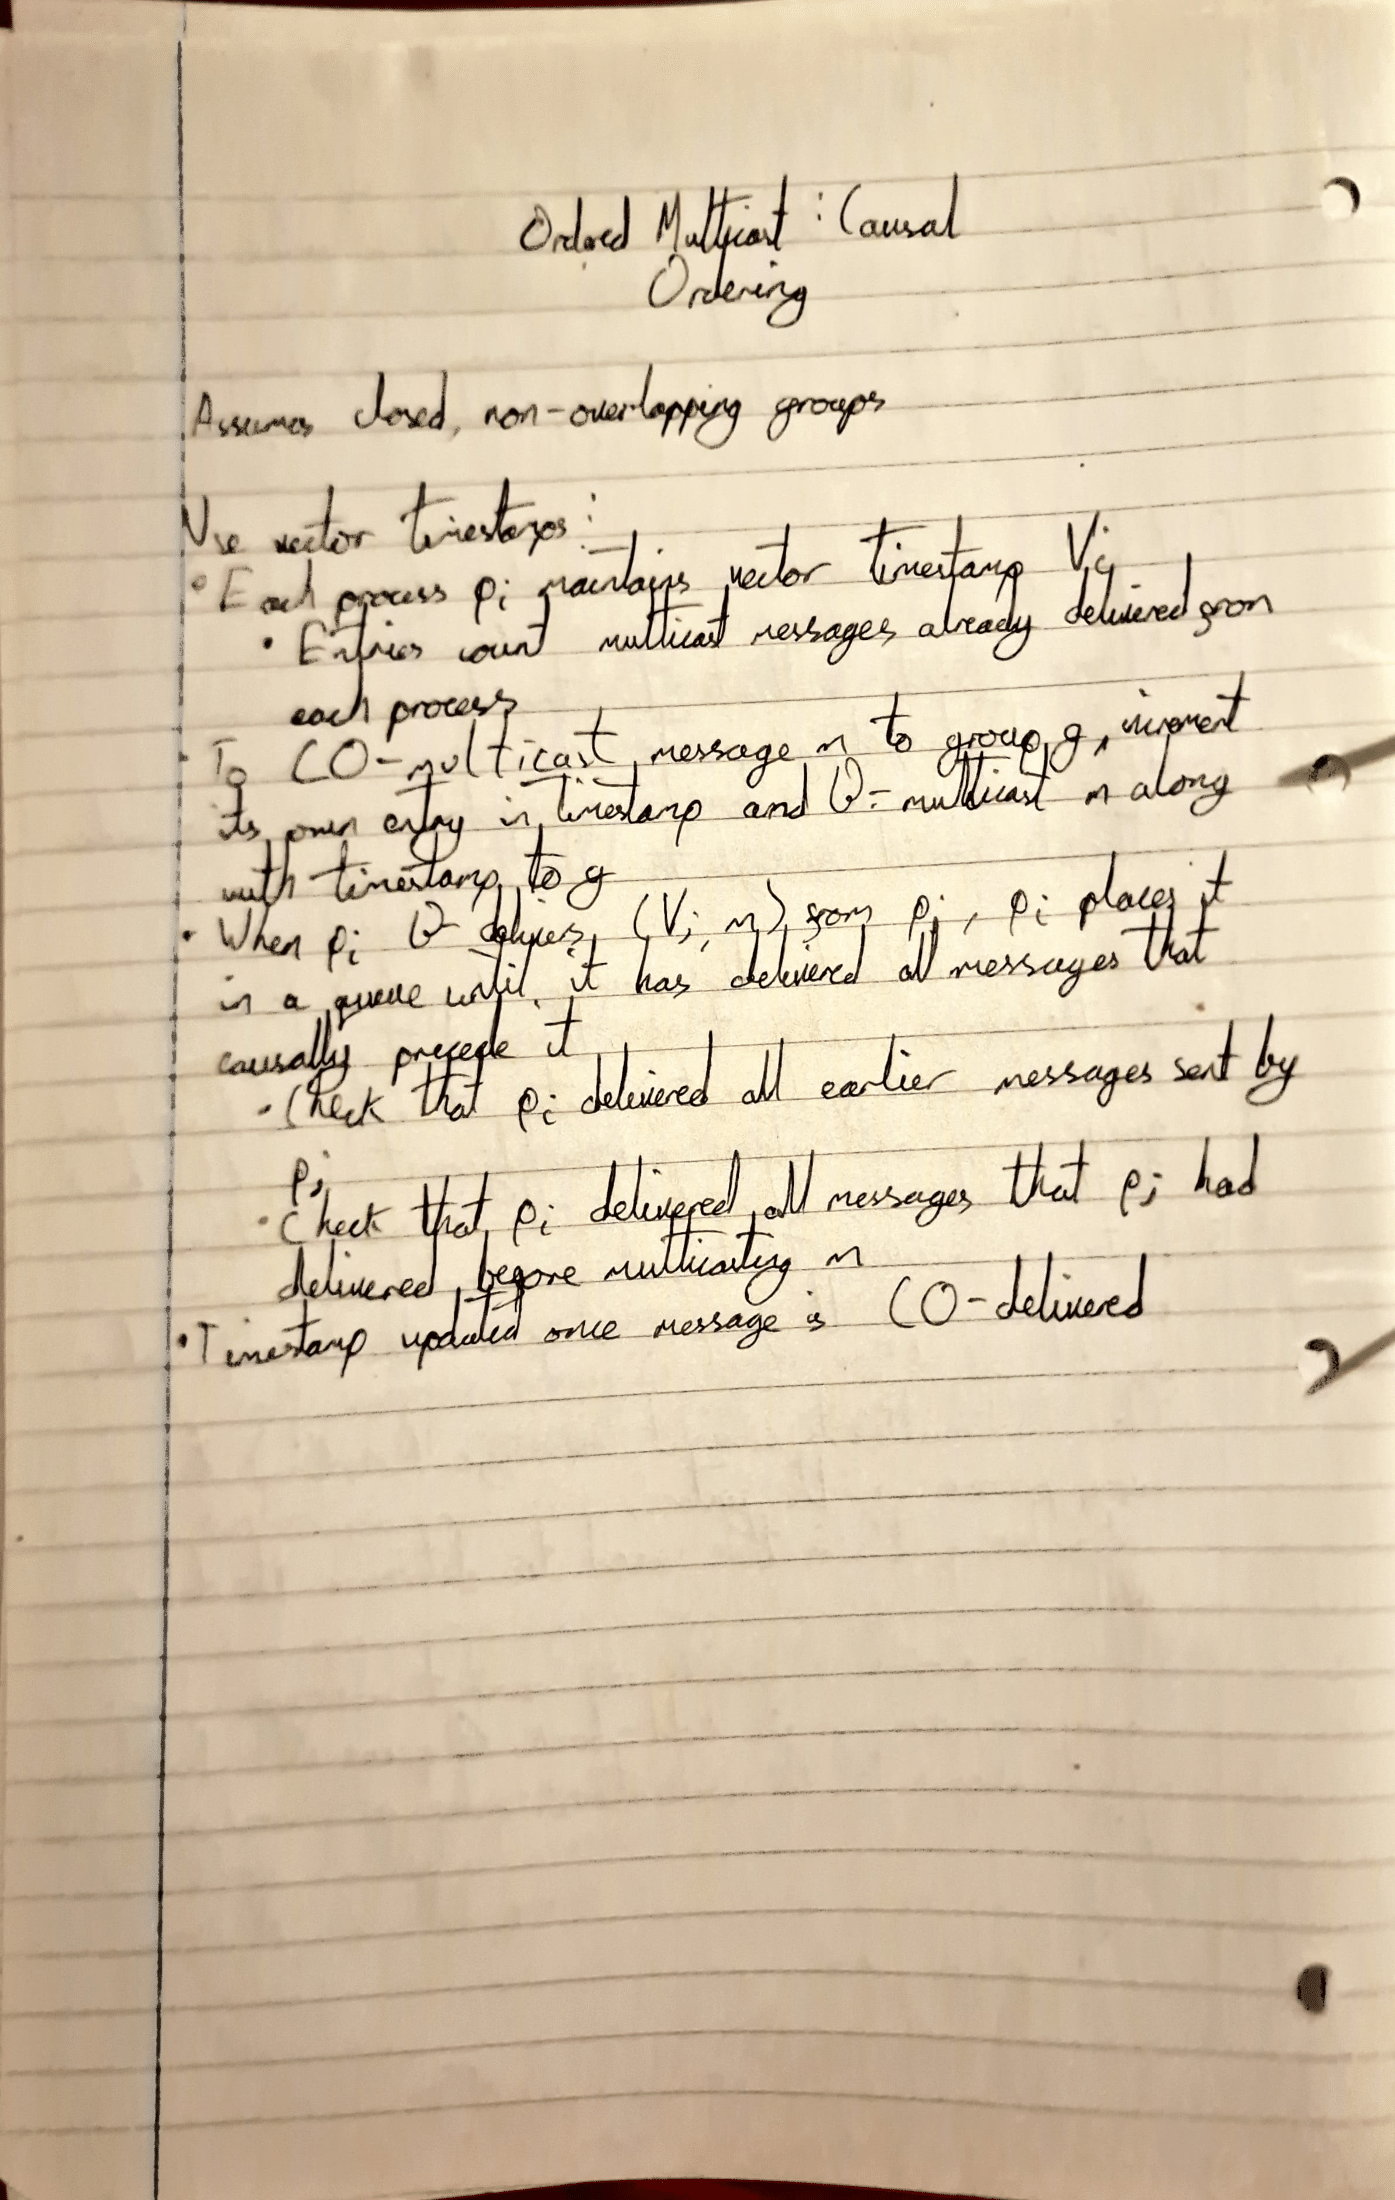 Ordered Multicast : Causal
Ordering
Assumes closed, non-overlapping groups
Use vector timestamps:
• Each process pi maintains vector timestamp Vi
• Entries count multicast messages already delivered from
each process
• To CO-multicast message m to group g, increment
its own entry in timestamp and B-multicast m along
with timestamp to g
• When pi B-delivers (Vj, m) from pj, pi places it
in a queue until it has delivered all messages that
causally precede it
• Check that pi delivered all earlier messages sent by
pj
• Check that pi delivered all messages that pj had
delivered before multicasting m
• Timestamp updated once message is CO-delivered